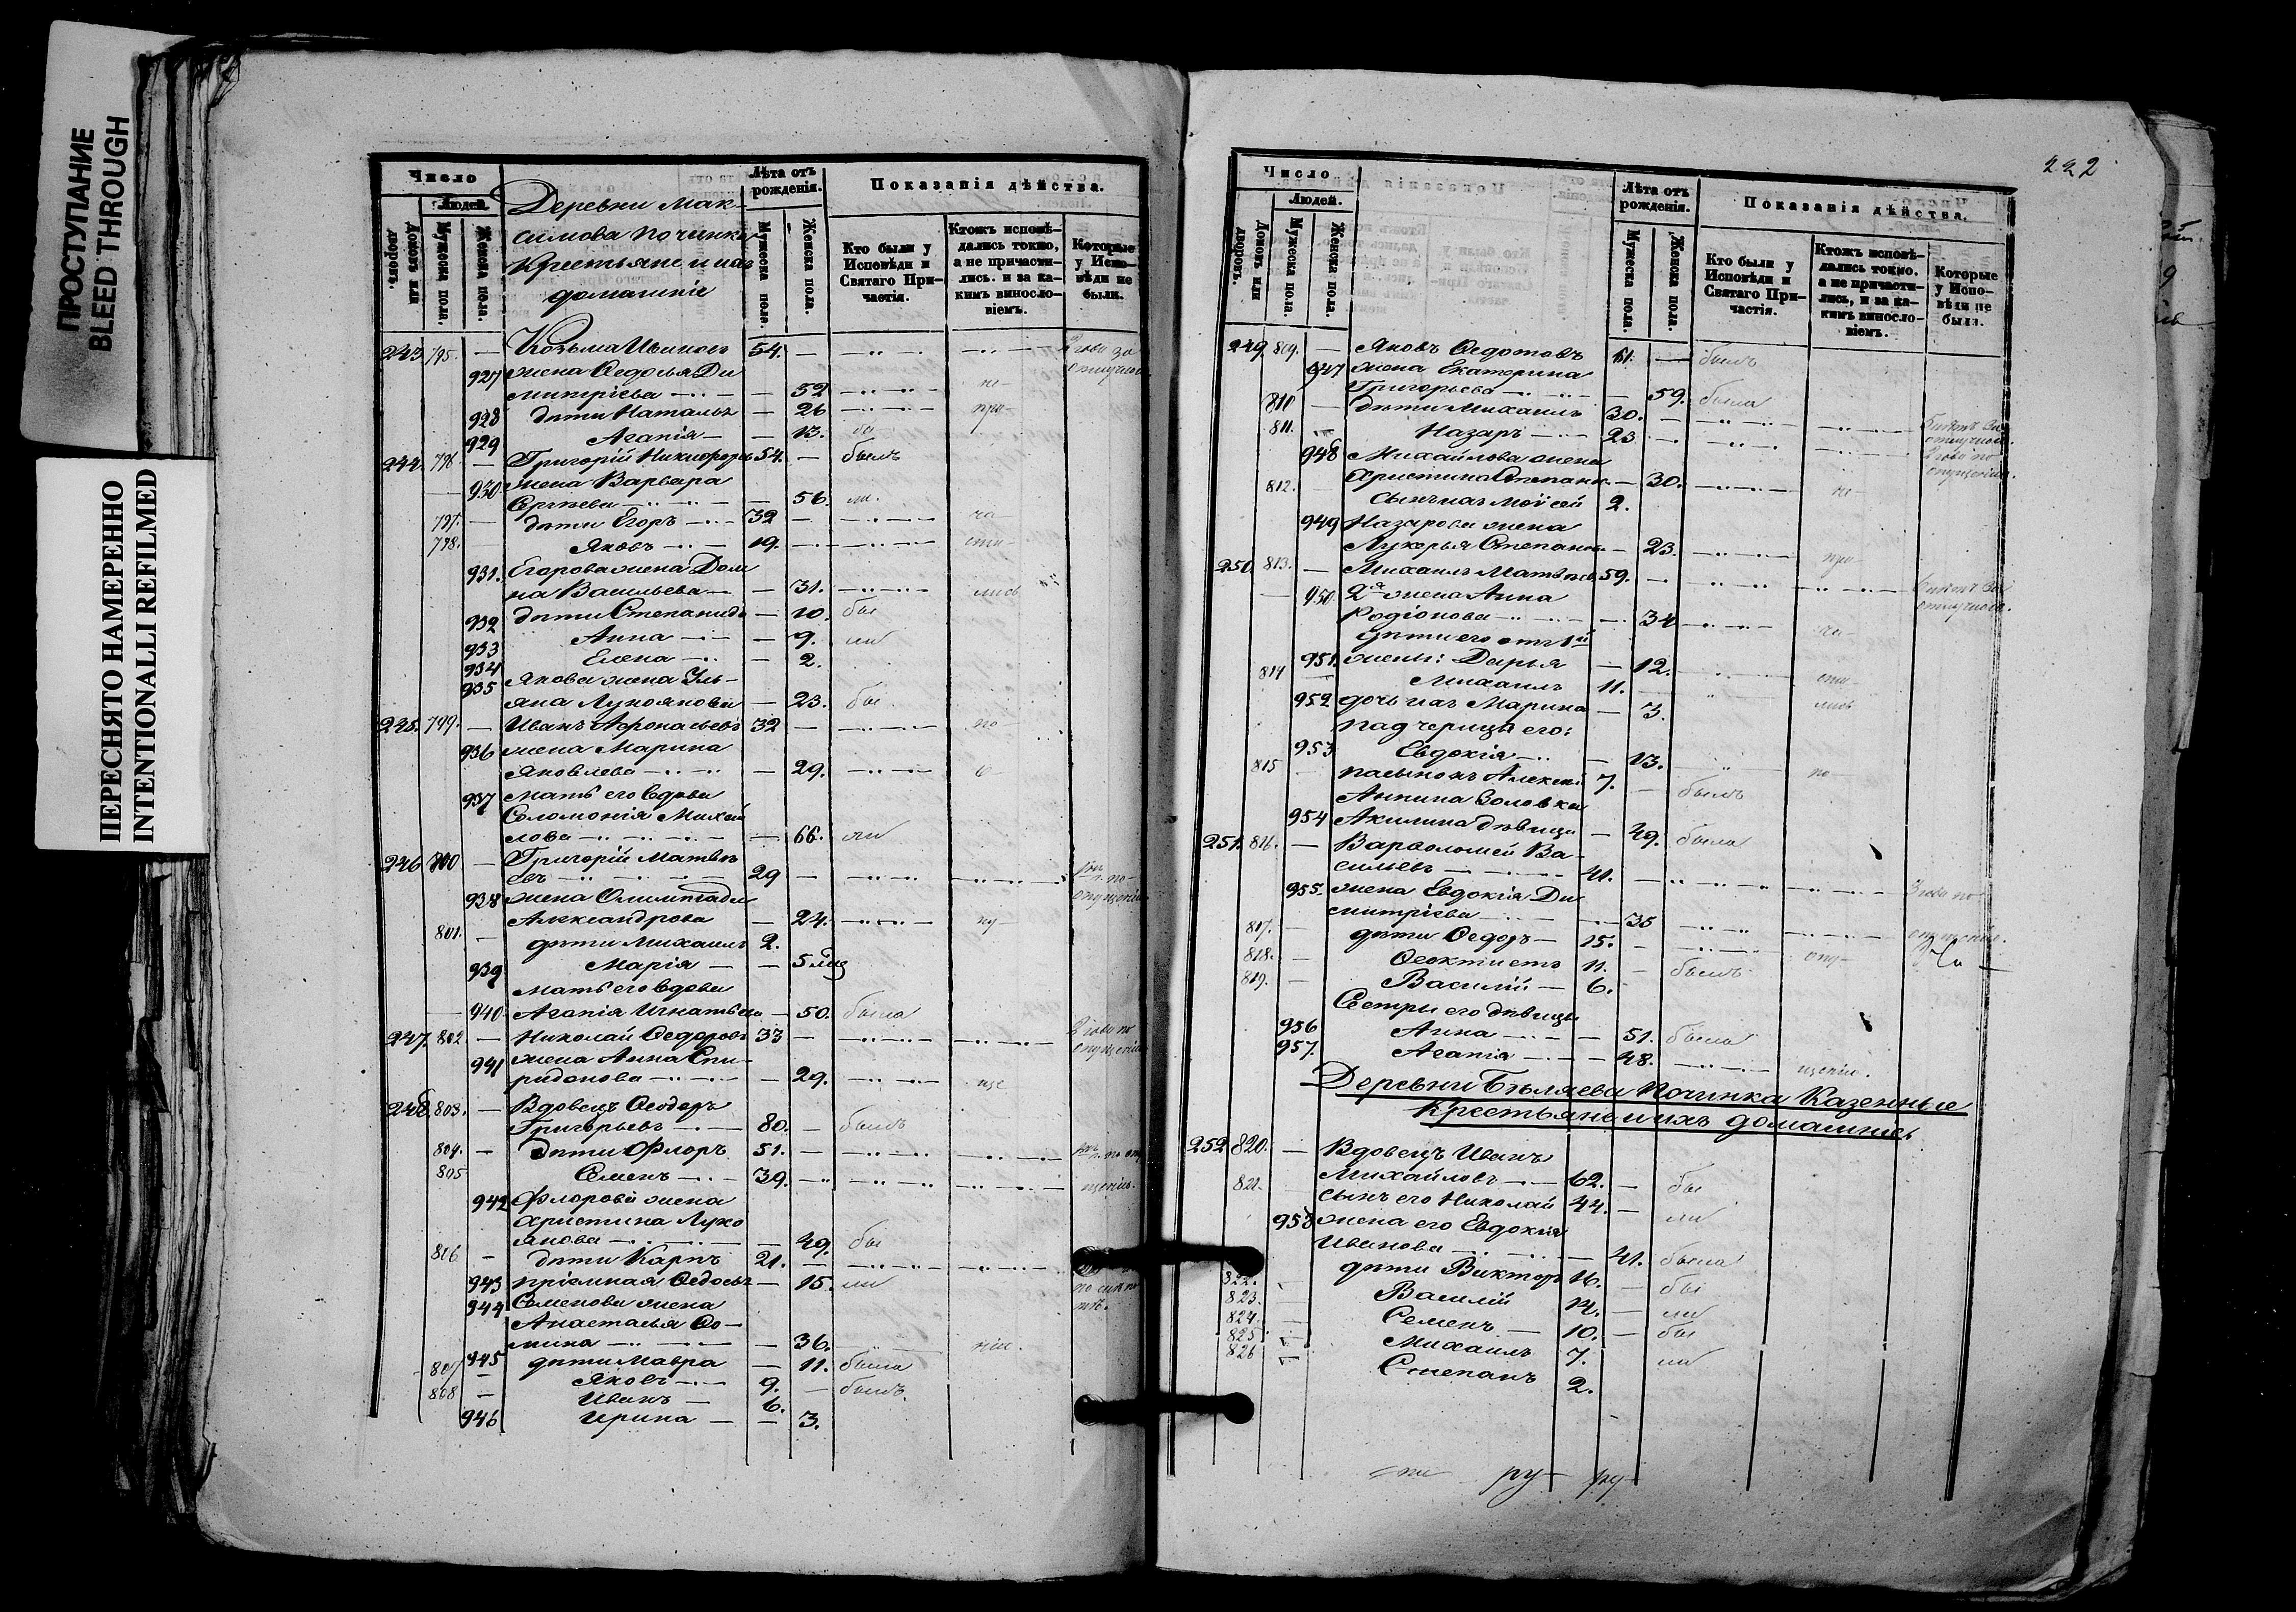 ПРОСТУПАНИЕ
BLEED THROUGH
ПЕРЕСНЯТО НАМЕРЕННО
INTENTIONALLI REFILMED
Число
Людей.
Домовъ или дворовъ.
Мужеска пола.
Женска пола.
Деревни Мак-
симова починка
Крестьяне и ихъ
домашніе
Лѣта отъ рожденія.
Мужеска пола.
Женска пола.
Показанія дѣйства.
Кто были у Исповѣди и Святаго Причастія.
Ктожъ исповѣдались токмо, а не причастились. и за какимъ винословіемъ.
Которые у Исповѣди не были.
243 795. — Козьма Ивановъ 54. —
927 жена Ѳедосья Ди
митріева — 52
928 дѣти Наталья — 26
929 Агапія — 13.
244. 796. — Григорій Никифоровъ 54. — былъ
930 жена Варвара
Сергѣева — 56.
797. — дѣти Егоръ 32 —
798. Яковъ 19. —
931. Егорова жена Дом
на Васильева — 31.
932 дѣти Степанида — 10. бы
933 Анна — 9. ли
934 Елена — 2.
935 Якова жена Уль-
яна Лукоянова — 23. бы
245. 799. — Иванъ Афонасьевъ 32 — по
936 жена Марина
Яковлева — 29.
937 мать его вдова
Соломонія Михай
лова — 66. ли
246 800 — Григорій Матвѣ
евъ 29 —
938 жена Олимпіада
Александрова — 24.
801. — дѣти Михаилъ 2.
939 Марія — 5 мѣс
мать его вдова
940 Агапія Игнатьева — 50. была
247. 802. — Николай Ѳедоровъ 33 —
941 жена Анна Спи-
ридонова — 29.
248. 803. — Вдовецъ Ѳеодоръ
Григорьевъ 80. — былъ
804. — дѣти Флоръ 51. —
805 Семенъ 39.
942 Флорова жена
Христина Луко
янова — 49. бы
806 — дѣти Карпъ 21. —
943 пріемная Ѳедосья — 15. ли
944 Семенова жена
Анастасья Ѳо-
мина — 36.
945 дѣти Мавра — 11. была
807 — Яковъ 9. — былъ.
808 — Иванъ 6.
946 Ирина — 3.
222
Число
Людей.
Домовъ или дворовъ.
Мужеска пола.
Женска пола.
Лѣта отъ рожденія.
Мужеска пола.
Женска пола.
Показанія дѣйства.
Кто были у Исповѣди и Святаго Причастія.
Ктожъ исповѣдались токмо. а не причастились, и за какимъ винословіемъ.
Которые у Исповѣди не были.
249. 809. — Яковъ Ѳедотовъ 61. — былъ
947 жена Екатерина
Григорьева — 59. была
810 — дѣти Михаилъ 30.
811. Назаръ 23
948 Михайлова жена
Христина Степанов — 30.
812. сынъ ихъ Моѵсей 2.
949 Назарова жена
Лукерья Степанова — 23.
250. 813. — Михаилъ Матвѣевъ 59. —
950. 2я жена Анна
Родіонова — 34
дѣти его отъ 1й
951. жены: Дарья — 12.
814 Михаилъ 11. —
952 дочь ихъ Марина — 3.
падчерица его:
953 Евдокія — 13.
815 пасынокъ Алексѣй 7. — былъ
Аннина золовка
954 Акилина дѣвица — 49. была
251. 816. — Варѳоломей Ва-
сильевъ 41. —
955. жена Евдокія Ди
митріева — 35
817. — дѣти Ѳедоръ 15. —
818. — Ѳеоктистъ 11. — былъ
819. — Василій 6.
Сестры его дѣвицы
956 Анна — 51. была
957. Агапія — 48. щенію.
Деревни Бѣляева Починка Казенные
Крестьяне и ихъ домашніе
252 820. — Вдовецъ Иванъ
Михайловъ 62. — бы
821. сынъ его Николай 44. — ли
958 жена его Евдокія
Иванова — 41. была
822. дѣти Викторъ 16. — бы
823. — Василій 14. — ли
824. — Семенъ 10. — бы
825 Михаилъ 7. ли
826 Степанъ 2.
ру — ру —